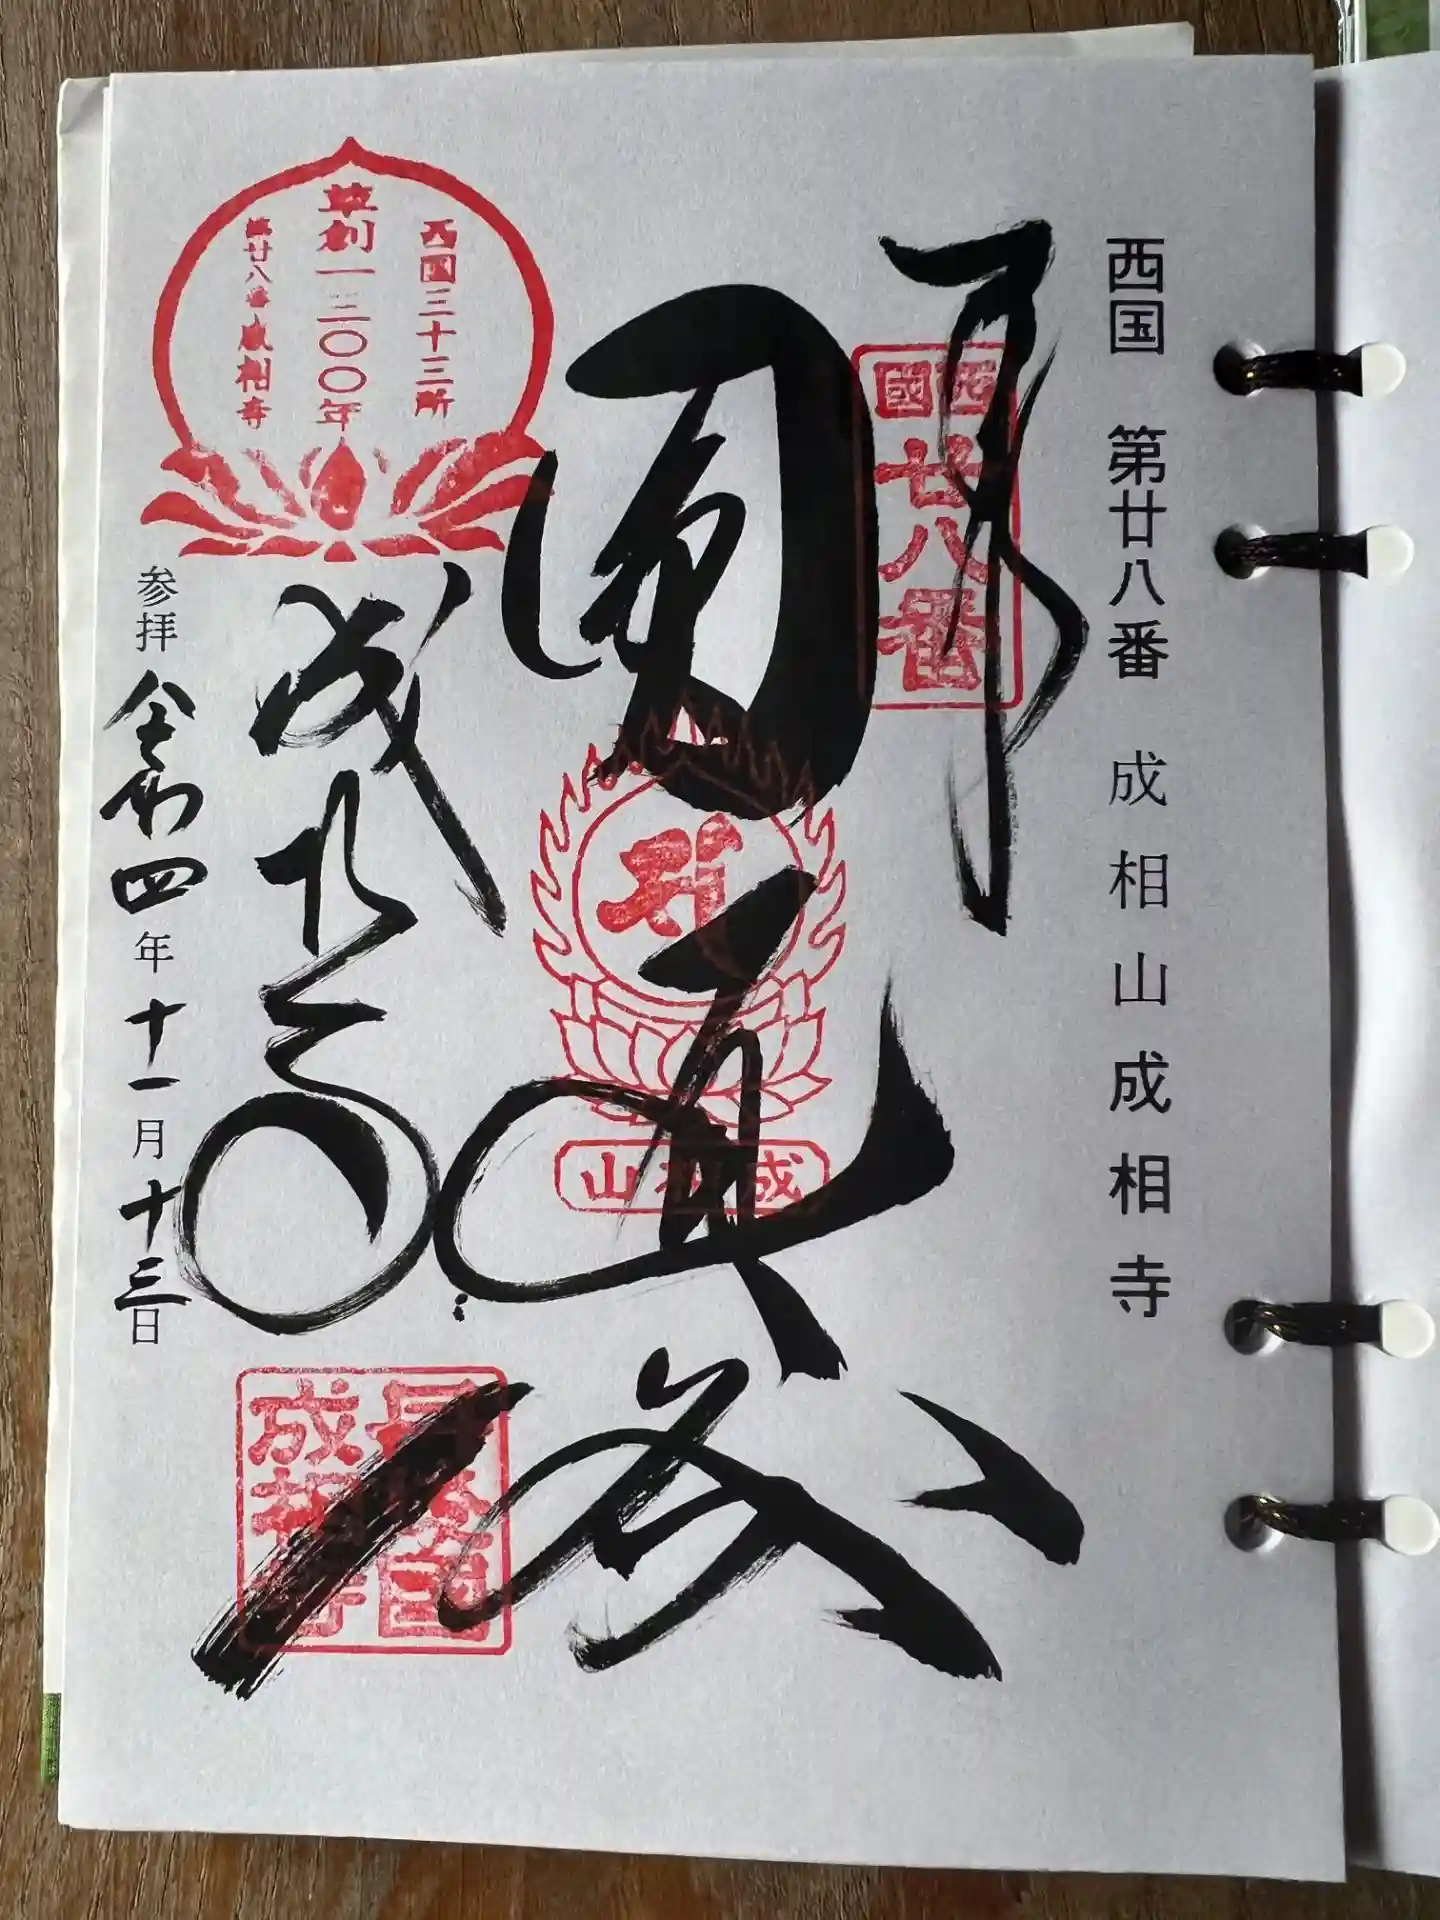 西国 第廿八番 成相山成相寺
奉
西國
廿八番
圓通殿
成相山
西国三十三所
草創一三〇〇年
第廿八番成相寺
成相寺
成相寺
参拝 令和四年十一月十三日